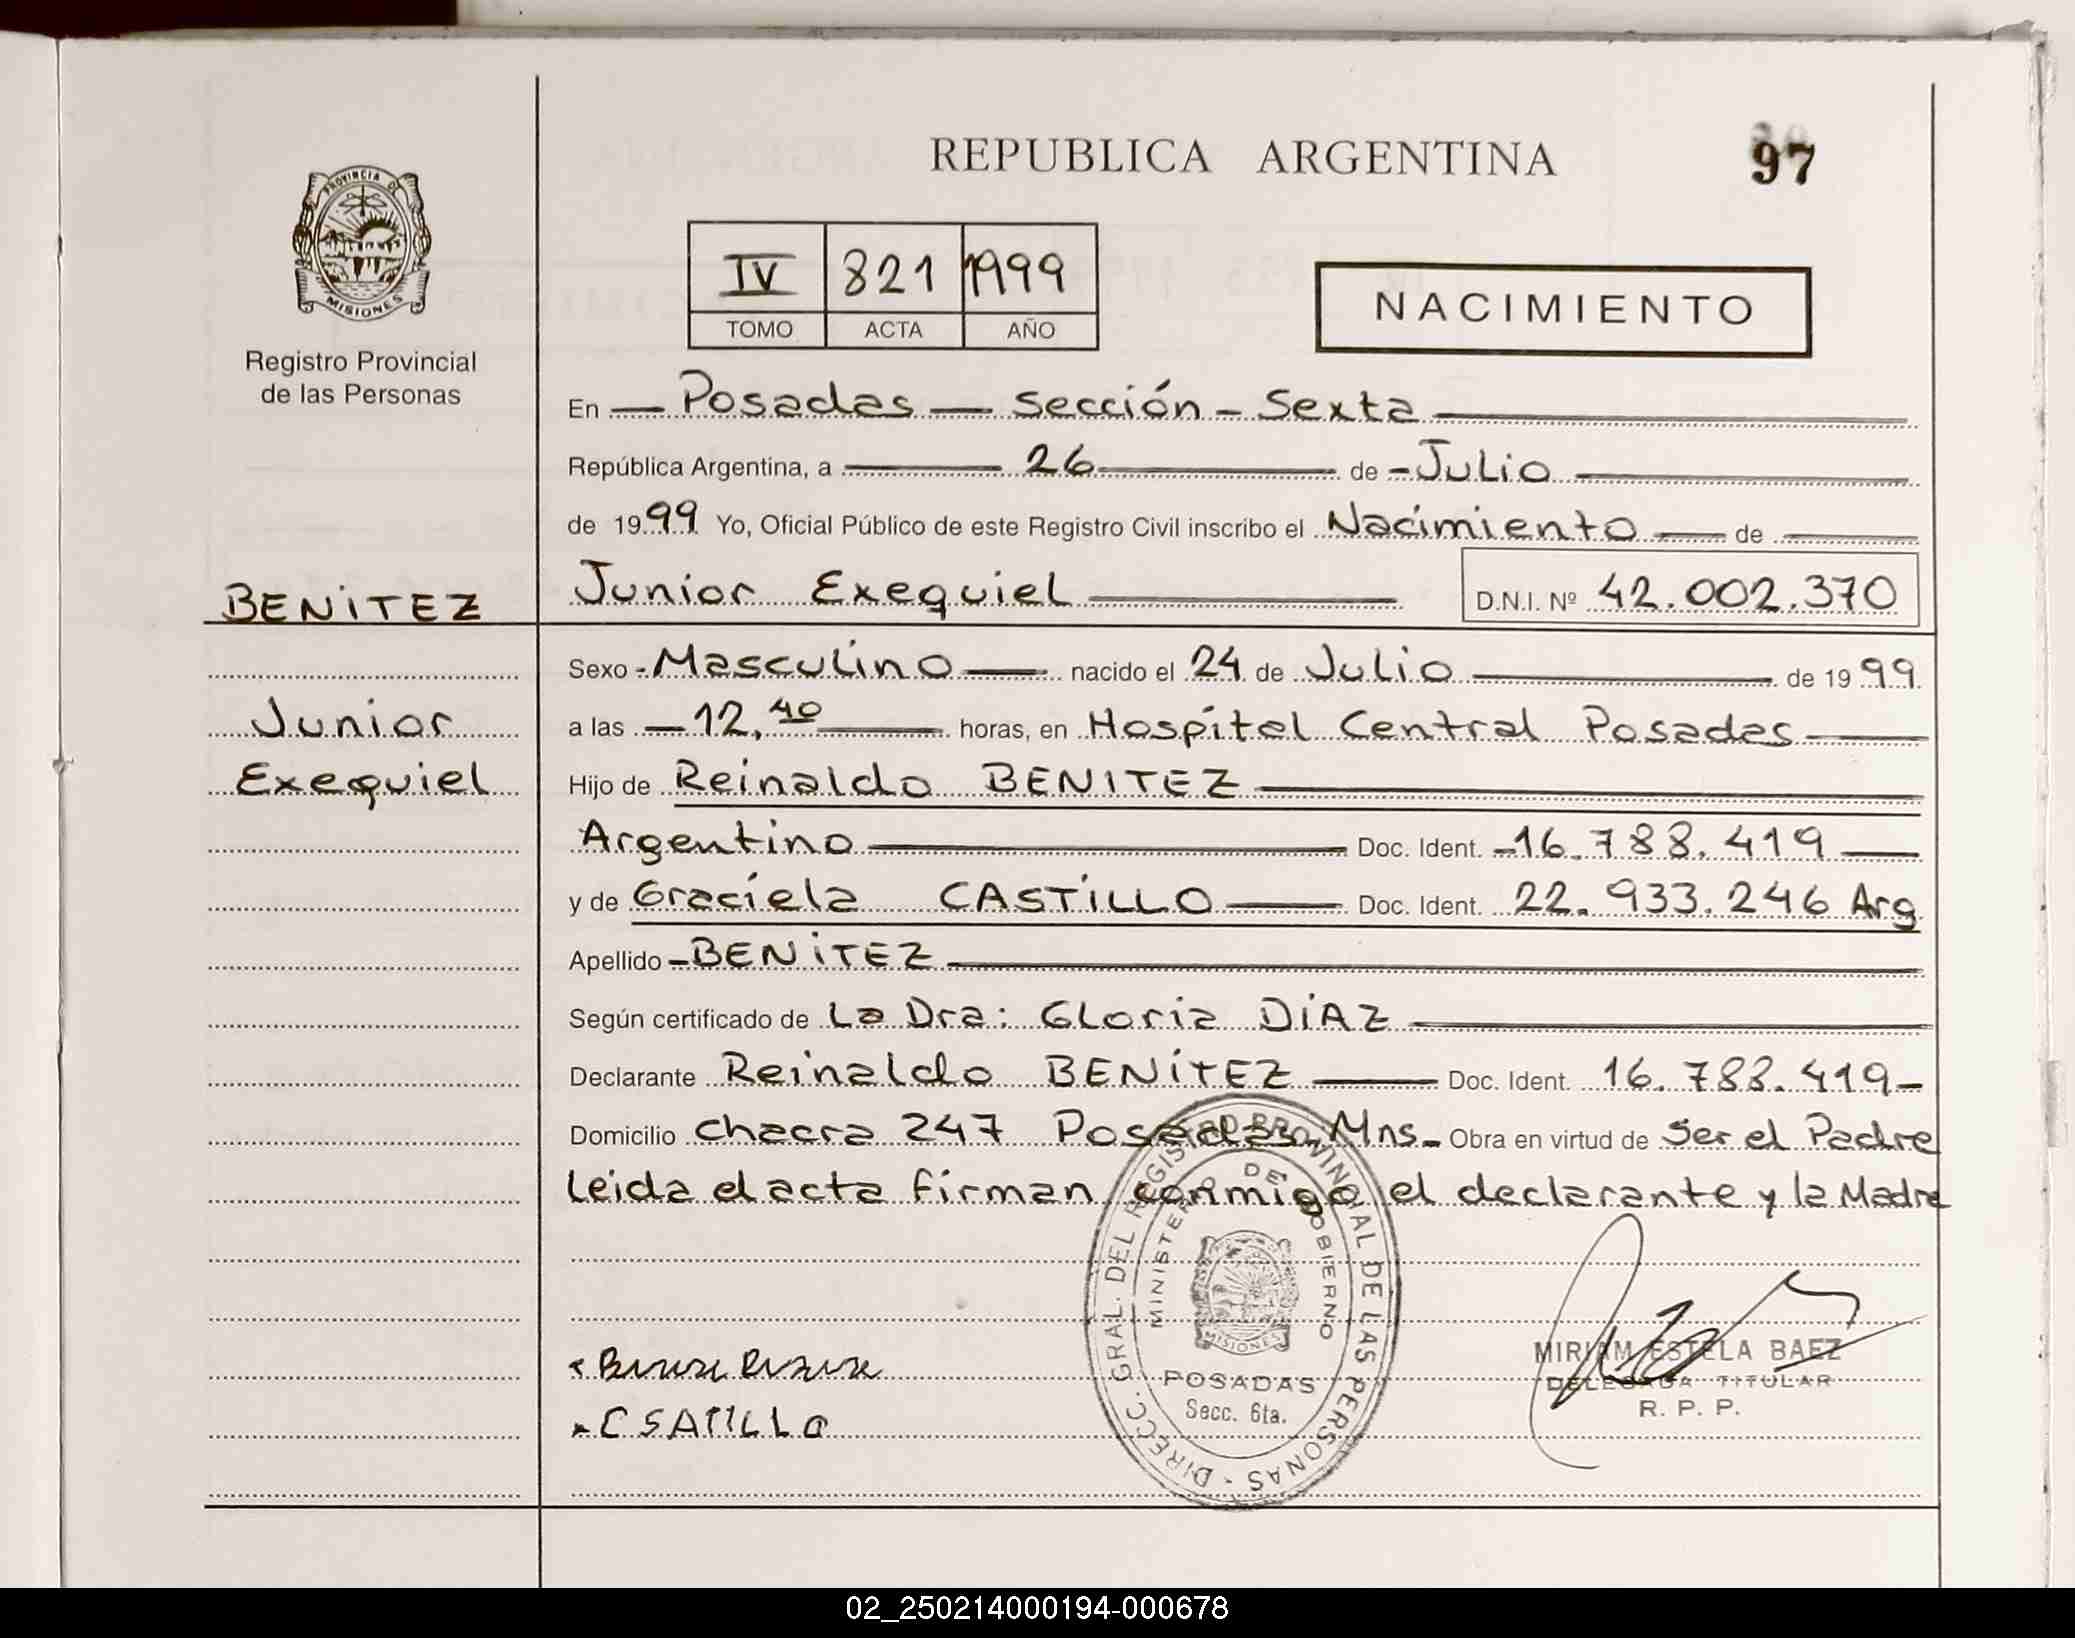 REPUBLICA ARGENTINA
97
PROVINCIA DE
MISIONES
Registro Provincial
de las Personas
IV 821 1999
TOMO ACTA AÑO
NACIMIENTO
En Posadas - Sección - Sexta
República Argentina, a 26 de Julio
de 1999 Yo, Oficial Público de este Registro Civil inscribo el Nacimiento de
BENITEZ
Junior Exequiel D.N.I. Nº 42.002.370
Sexo Masculino nacido el 24 de Julio de 1999
Junior
a las 12,40 horas, en Hospital Central Posadas
Exequiel
Hijo de Reinaldo BENITEZ
Argentino Doc. Ident. 16.788.419
y de Graciela CASTILLO Doc. Ident. 22.933.246 Arg
Apellido BENITEZ
Según certificado de La Dra: Gloria DIAZ
Declarante Reinaldo BENITEZ Doc. Ident. 16.788.419
Domicilio chacra 247 Posadas, Mns. Obra en virtud de Ser el Padre
Leida el acta firman conmigo el declarante y la Madre
DIRECC. GRAL. DEL REGISTRO PROVINCIAL DE LAS PERSONAS
MINISTERIO DE GOBIERNO
MISIONES
POSADAS
Secc. 6ta.
MIRIAM ESTELA BAEZ
DELEGADA TITULAR
R. P. P.
CSATILLO
02_250214000194-000678